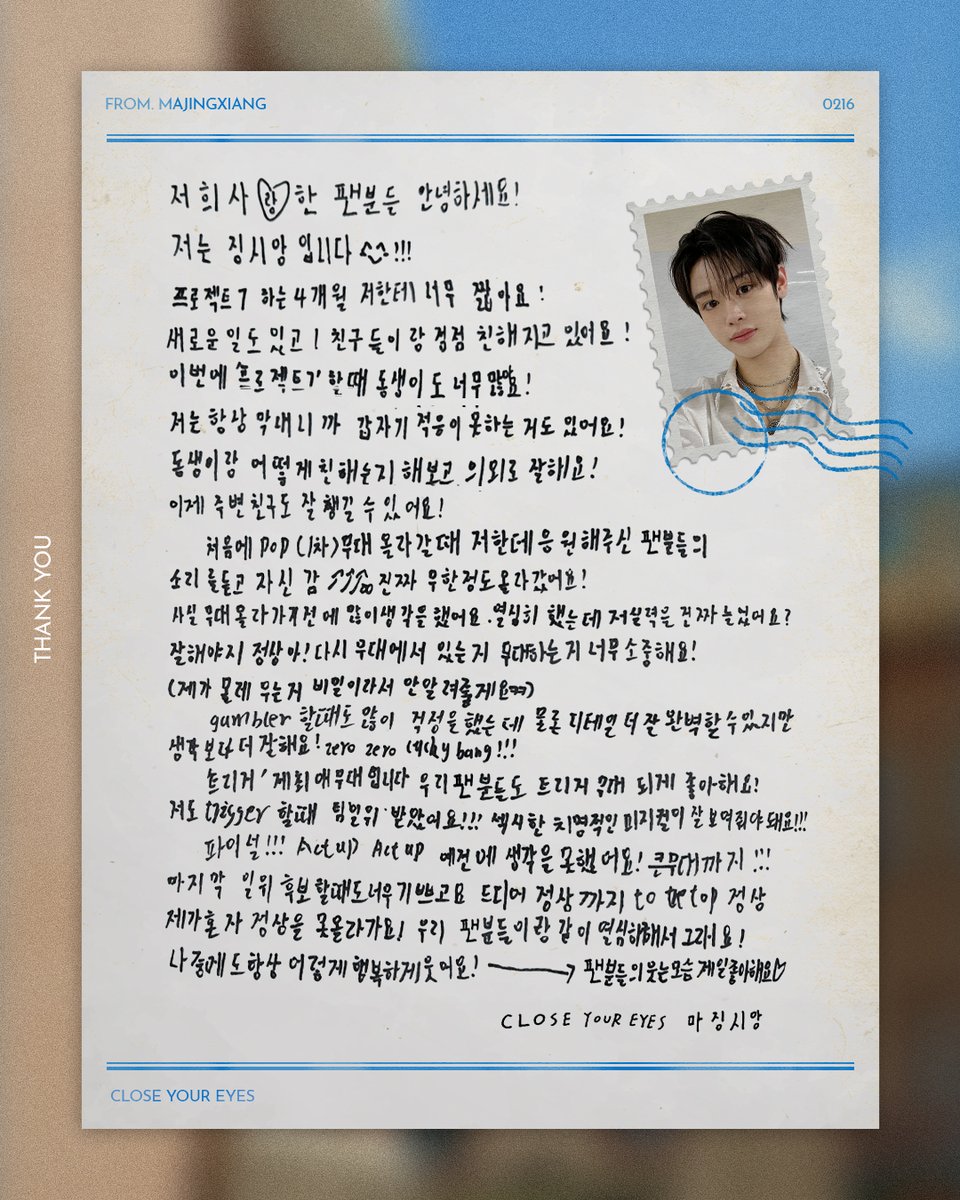 FROM. MAJINGXIANG
0216
저희 사랑한 팬분들 안녕하세요!
저는 징시앙 입니다 !!!
프로젝트7 하는 4개월 저한테 너무 짧아요!
새로운 일도 있고 친구들이랑 점점 친해지고 있어요!
이번에 프로젝트7 할때 동생이도 너무 많았요!
저는 항상 막내니까 갑자기 적응이 못하는 거도 있어요!
동생이랑 어떻게 친해는지 해보고 의외로 잘해요!
이제 주변 친구도 잘 챙길 수 있어요!
처음에 POP (1차)무대 올라갈때 저한테 응원해주신 팬분들의
소리를 듣고 자신감 진짜 무한정도 올라갔어요!
사실 무대 올라가기 전에 많이 생각을 했어요. 열심히 했는데 저 실력을 진짜 늘었어요?
잘해야지 정상아! 다시 무대에서 있는지 무대하는거 너무 소중해요!
(제가 몰레 우는거 비밀이라서 안알려줄게요)
gambler 할때도 많이 걱정을 했는데 물론 디테일 더 잘 완벽할 수 있지만
생각보다 더 잘해요! zero zero lucky bang!!!
트리거' 제 최애 무대 입니다 우리 팬분들도 트리거 무대 되게 좋아해요!
저도 trigger 할때 팀일위 받았어요!!! 섹시한 치명적인 피지컬이 잘 보여줘야 돼요!!!
파이널!!! Act up Act up 예전에 생각을 못했어요! 큰무대까지!!!
마지막 일위 후보 할때도 너무 기쁘고요 드디어 정상까지 to the top 정상
제가 혼자 정상을 못올라가요! 우리 팬분들이랑 같이 열심해해서 그래요!
나중에도 항상 이렇게 행복하게 웃어요! → 팬분들의 웃는 모습 제일 좋아해요♡
CLOSE YOUR EYES 마징시앙
THANK YOU
CLOSE YOUR EYES